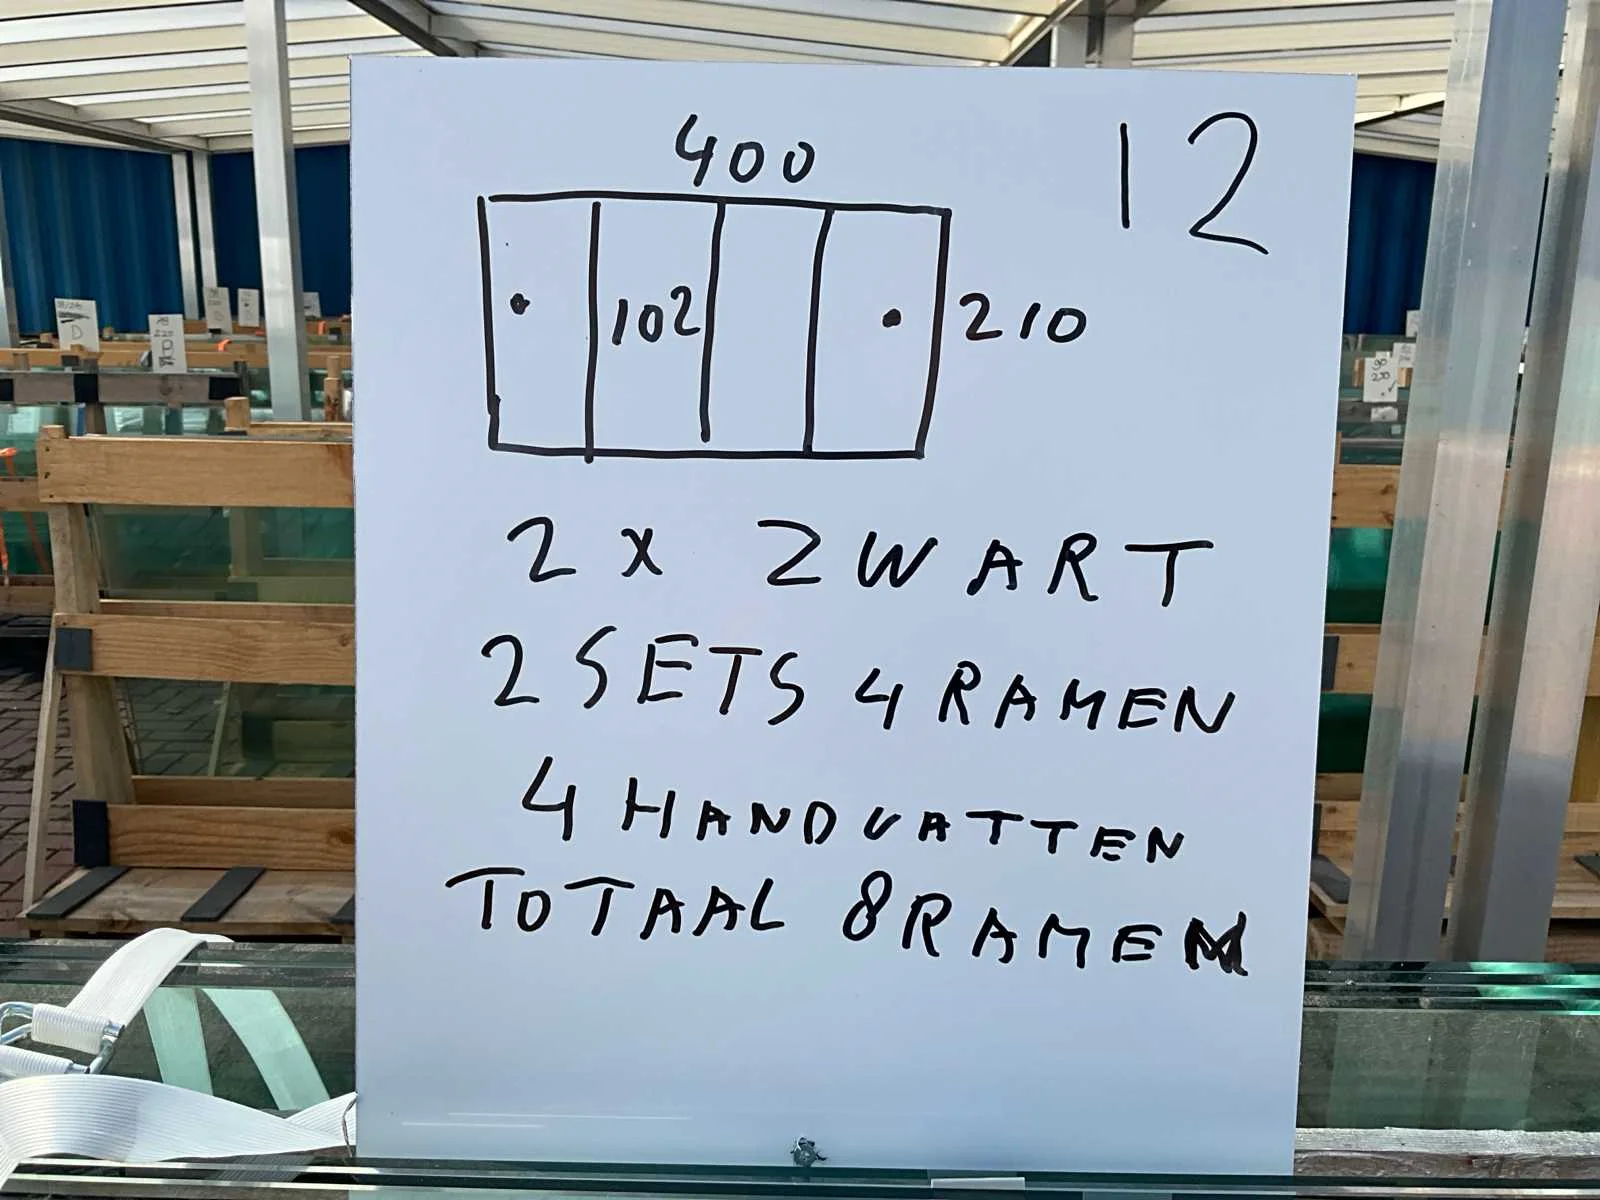 12
400
102
210
2 x ZWART
2 SETS 4 RAMEN
4 HANDVATTEN
TOTAAL 8 RAMEN
90
220
D